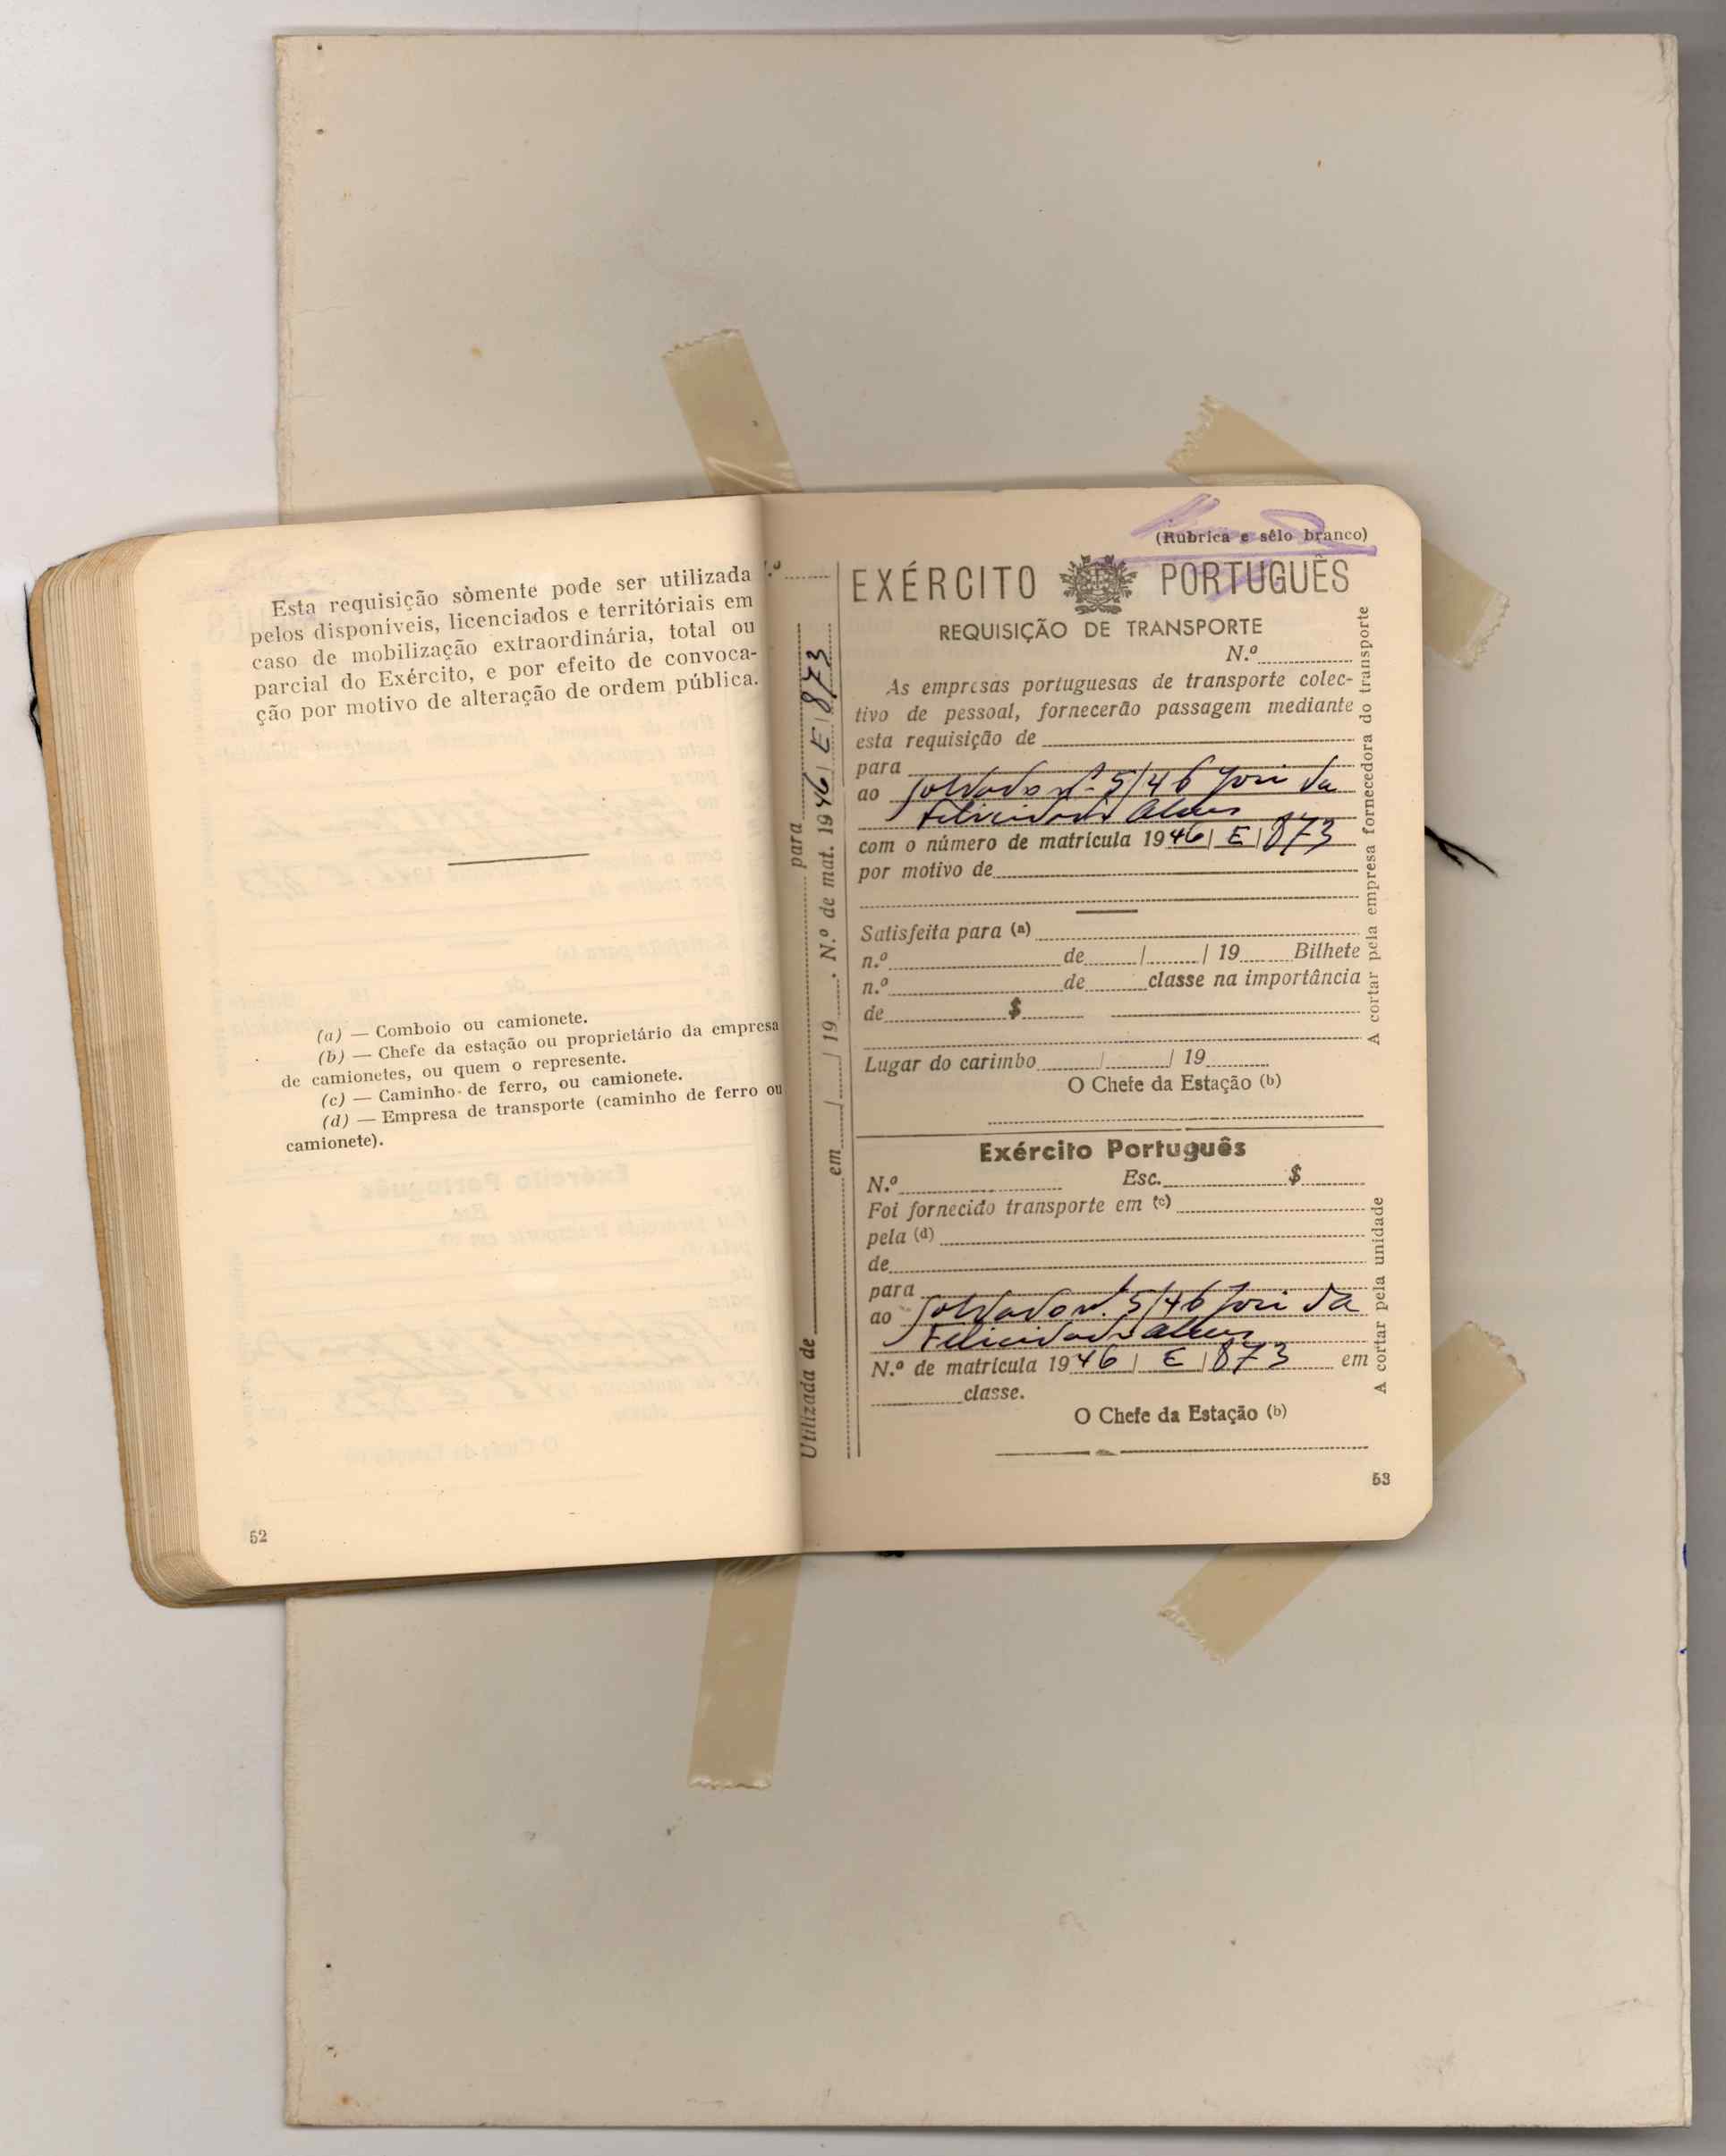 Esta requisição sòmente pode ser utilizada
pelos disponíveis, licenciados e territóriais em
caso de mobilização extraordinária, total ou
parcial do Exército, e por efeito de convoca-
ção por motivo de alteração de ordem pública.
(a) — Comboio ou camionete.
(b) — Chefe da estação ou proprietário da empresa
de camionetes, ou quem o represente.
(c) — Caminho de ferro, ou camionete.
(d) — Empresa de transporte (caminho de ferro ou
camionete).
52
Utilizada de para
em / / 19 . N.º de mat. 1946 / E / 873
(Rubrica e sêlo branco)
EXÉRCITO PORTUGUÊS
REQUISIÇÃO DE TRANSPORTE
N.º
As empresas portuguesas de transporte colec-
tivo de pessoal, fornecerão passagem mediante
esta requisição de
para
ao Soldado nº 5/46 José da
Felicidade Alves
com o número de matrícula 1946 / E / 873
por motivo de
Satisfeita para (a)
n.º de / / 19 Bilhete
n.º de classe na importância
de $
Lugar do carimbo / / 19
O Chefe da Estação (b)
A cortar pela empresa fornecedora do transporte
Exército Português
N.º Esc. $
Foi fornecido transporte em (c)
pela (d)
de
para
ao Soldado nº 5/46 José da
Felicidade Alves
N.º de matrícula 1946 / E / 873 em
classe.
O Chefe da Estação (b)
A cortar pela unidade
53